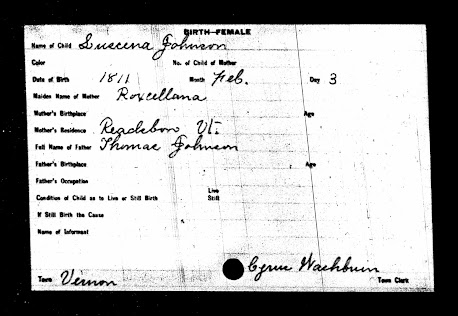 BIRTH—FEMALE
Name of Child Luscena Johnson
Color No. of Child of Mother
Date of Birth 1811 Month Feb. Day 3
Maiden Name of Mother Roxcellana
Mother's Birthplace Age
Mother's Residence Readsboro Vt.
Full Name of Father Thomas Johnson
Father's Birthplace Age
Father's Occupation
Condition of Child as to Live or Still Birth Live
Still
If Still Birth the Cause
Name of Informant
Cyrus Washburn
Town Vernon Town Clerk